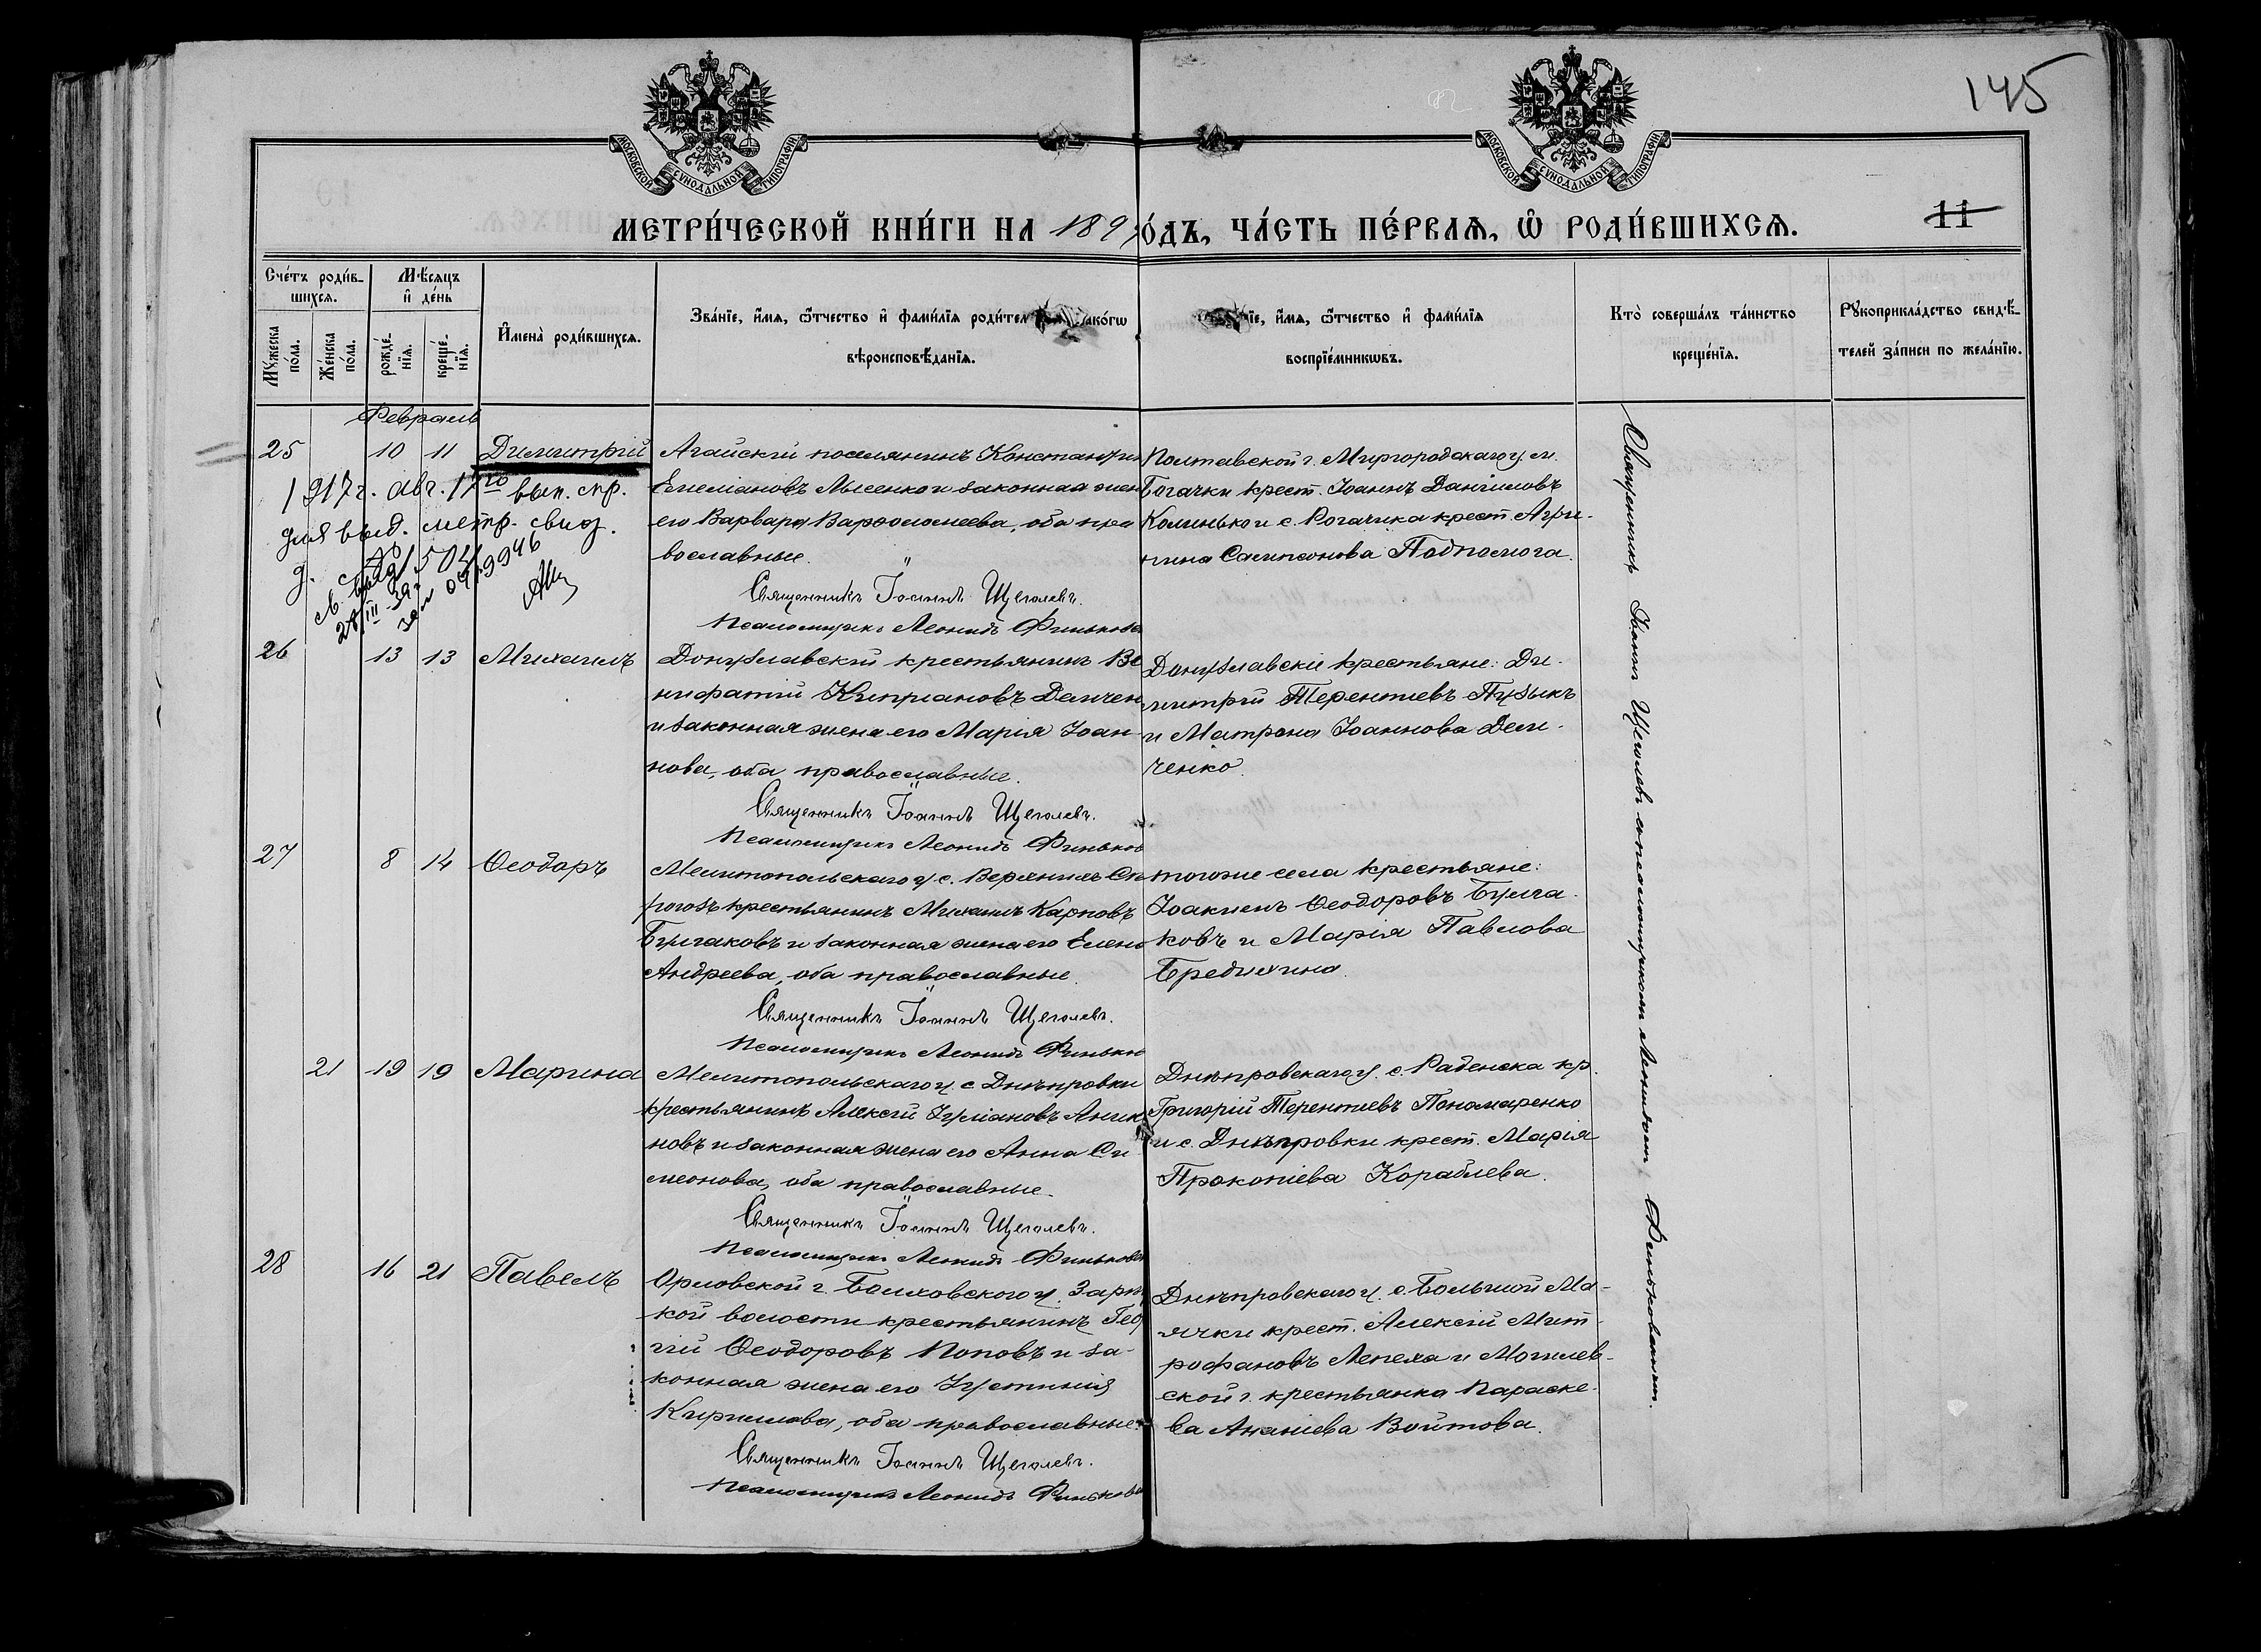 145
МОСКОВСКОЙ СѴНОДАЛЬНОЙ ТИПОГРАФІИ
МОСКОВСКОЙ СѴНОДАЛЬНОЙ ТИПОГРАФІИ
МЕТРИ́ЧЕСКОЙ КНИ́ГИ НА 189 О́ДЪ, ЧА́СТЬ ПЕ́РВАѦ, Ѡ҆ РОДИ́ВШИХСѦ.
11
Сче́тъ роди́в-
шихсѧ.
Мꙋ́жеска по́ла.
Же́нска по́ла.
Мѣ́сѧцъ и҆ де́нь
рожде́-нїѧ.
креще́-нїѧ.
И҆мена̀ роди́вшихсѧ.
Зва́нїе, и҆́мѧ, ѻ҆́тчество и҆ фами́лїѧ роди́тел ако́гѡ
вѣроисповѣ́данїѧ.
їе, и҆́мѧ, ѻ҆́тчество и҆ фами́лїѧ
воспрїе́мникѡвъ.
Кто̀ соверша́лъ та́инство
креще́нїѧ.
Рꙋкоприкла́дство свидѣ́-
телей за́писи по жела́нїю.
Февраль
25 10 11 Димитрій
Агайскій поселянинъ Константин
Емеліановъ Лысенко и законная жен
его Варвара Варѳоломеева, оба пра
вославные.
Священникъ Іоаннъ Щеголевъ.
Псаломщикъ Леонидъ Финьков
Полтавской г. Миргородскаго у. м.
Богачки крест. Іоаннъ Даніиловъ
Колинько и с. Рогачика крест. Агри-
пина Сампсонова Подпомога.
1917 г. авг. 17го вып. спр.
для выд. метр. свид.
26 13 13 Михаилъ
Донузлавскій крестьянинъ Во
нифатій Кипріановъ Демчен
и законная жена его Марія Іоан-
нова, оба православные.
Священникъ Іоаннъ Щеголевъ.
Псаломщикъ Леонидъ Финьков
Донузлавскіе крестьяне: Ди-
митрій Терентіевъ Пузыкъ
и Матрона Іоаннова Дем-
ченко.
27 8 14 Ѳеодоръ
Мелитопольскаго у. с. Верхнихъ Сѣ
рогозъ крестьянинъ Михаилъ Карповъ
Булгаковъ и законная жена его Елена
Андреева, оба православные.
Священникъ Іоаннъ Щеголевъ.
Псаломщикъ Леонидъ Финьков
того же села крестьяне:
Іоакимъ Ѳеодоровъ Булга-
ковъ и Марія Павлова
Бредихина.
21 19 19 Марина
Мелитопольскаго у. с. Днѣпровки
крестьянинъ Алексій Іуліановъ Аник
новъ и законная жена его Анна Си
меонова, оба православные.
Священникъ Іоаннъ Щеголевъ.
Псаломщикъ Леонидъ Финьков
Днѣпровскаго у. с. Раденска кр.
Григорій Терентіевъ Пономаренко
и с. Днѣпровки крест. Марія
Прокопіева Кораблева.
28 16 21 Павелъ
Орловской г. Болховского у.
кой волости крестьянинъ Гео
гій Ѳеодоровъ Поповъ и за-
конная жена его Іустинія
Кирилова, оба православные.
Священникъ Іоаннъ Щеголевъ.
Псаломщикъ Леонидъ Финьков
Днѣпровскаго у. с. Большой Ма-
ячки крест. Алексій Мит-
рофановъ Лепеха и Могилев-
ской г. крестьянка Параске-
ва Ананіева Войтова.
Священникъ Іоаннъ Щеголевъ съ псаломщикомъ Леонидомъ Финьковымъ.